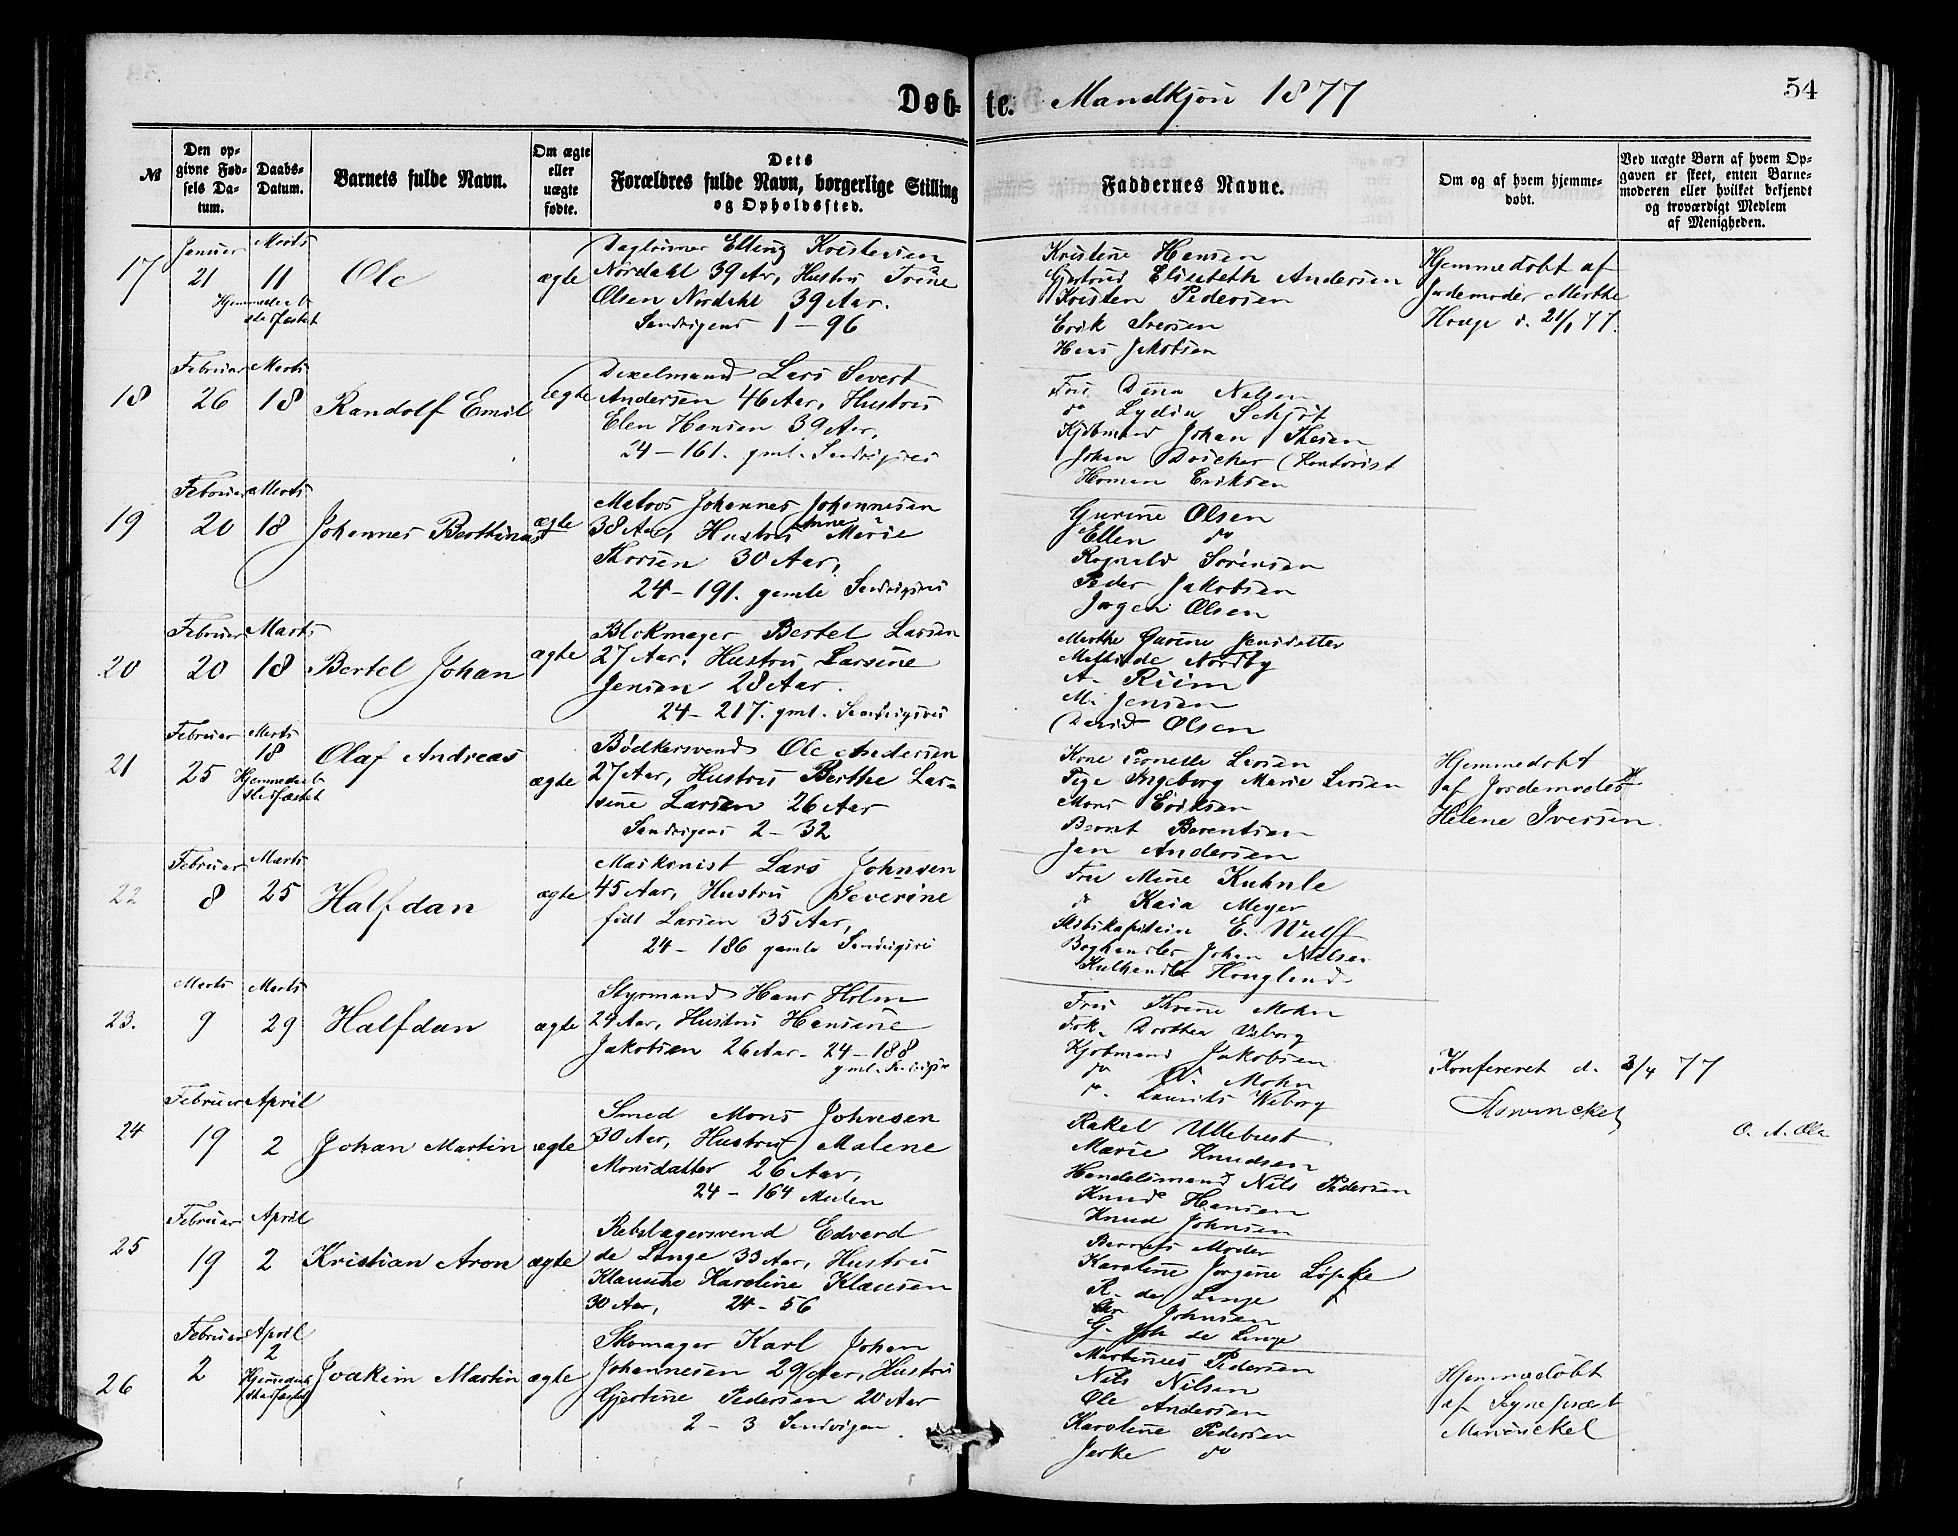 Døb- te. Mandkjøn 1877
54
№
Den op-
givne Fød-
sels Da-
tum.
Daabs-
Datum.
Barnets fulde Navn.
Om ægte
eller
uægte
fødte.
Dets
Forældres fulde Navn, borgerlige Stilling
og Opholdssted.
Faddernes Navne.
Om og af hvem hjemme-
døbt.
Ved uægte Børn af hvem Op-
gaven er skeet, enten Barne-
moderen eller hvilket bekjendt
og troværdigt Medlem
af Menigheden.
17
Januer
21
Marts
11
Hjemmedaab
stadfæstet
Ole
ægte
Dagleiner Elling Kristensen
Nordahl 39 Aar, Hustru Trine
Olsen Nordahl 39 Aar.
Sandvigens 1 - 96
Kristine Hansen
Gjertrud Elisabeth Andersen
Kristen Pedersen
Erik Iversen
Hans Jakobsen
Hjemmedøbt af
Jordemoder Marthe
Houge d. 21/1 77.
18
Februar
26
Marts
18
Randolf Emil
ægte
Dixelmand Lars Severt
Andersen 46 Aar, Hustru
Elen Hansen 39 Aar,
24 - 161. gml. Sandvigsvei
Fru Dina Nelsen
do Lydia Schjøt
Kjøbmand Johan Thesen
Johan Dricker (Kontorist
Herman Eriksen
19
Februar
20
Marts
18
Johannes Berthinus
ægte
Matros Johannes Johannesen
38 Aar, Hustru Anne Marie
Thorsen 30 Aar,
24 - 191. gamle Sandvigsvei
Gurine Olsen
Ellen do
Ragnald Sørensen
Peder Jakobsen
Jørgen Olsen
20
Februar
20
Marts
18
Bertel Johan
ægte
Blokmager Bertel Larsen
27 Aar, Hustru Larsine
Jensen 28 Aar.
24 - 217. gml. Sandvigsvei
Marthe Gurine Jensdatter
Mathilde Nordby
A. Riim
M. Jensen
David Olsen
21
Februar
25
Marts
18
Hjemmedaab
stadfæstet
Olaf Andreas
ægte
Bødkersvend Ole Andersen
27 Aar, Hustru Berthe Lar-
sine Larsen 26 Aar
Sandvigens 2 - 32
Kone Pernelle Larsen
Pige Ingeborg Marie Larsen
Mons Eriksen
Bernt Berentsen
Jan Andersen
Hjemmedøbt
af Jordemoder
Helene Iversen.
22
Februar
8
Marts
25
Halfdan
ægte
Maskinist Lars Johnsen
45 Aar, Hustru Severine
født Larsen 35 Aar,
24 - 186 gamle Sandvigsvei
Fru Mine Kuhnle
do Kaia Meyer
Skibskaptein E. Wulff
Boghandler Johan Nilsen
Kulhandler Hougland
23.
Marts
9
Marts
29
Halfdan
ægte
Styrmand Hans Holm
24 Aar, Hustru Hansine
Jakobsen 26 Aar. 24 - 188
gml. Sandvigsv
Fru Thrine Mohn
Frk. Dorthea Wiborg
Kjøbmand Jakobsen
do Mohn
do Laurits Wiborg
Konfereret d. 3/4 77
Marwinckel
24
Februar
19
April
2
Johan Martin
ægte
Smed Mons Johnsen
30 Aar, Hustru Malene
Monsdatter 26 Aar,
24 - 164 Mulen
Rakel Ullebust
Marie Knudsen
Handelsmand Nils Pedersen
Knud Hansen
Knud Johnsen
25
Februar
19
April
2
Kristian Aron
ægte
Rebslagersvend Edvard
de Lange 33 Aar, Hustru
Klausine Karoline Klausen
30 Aar, 24 - 56
Barnets Moder
Karoline Jørgine Løpke
R. de Lange
Johnsen
G. Joh de Lange
26
Februar
2
April
2
Hjemmedaab
stadfæstet
Joakim Martin
ægte
Skomager Karl Johan
Johannesen 29 Aar, Hustru
Gjertine Pedersen 20 Aar
2 - 3 Sandvigen
Martinus Pedersen
Nils Nilsen
Ole Andersen
Karoline Pedersen
Jerke do
Hjemmedøbt
af Sognepræst
Marwinckel